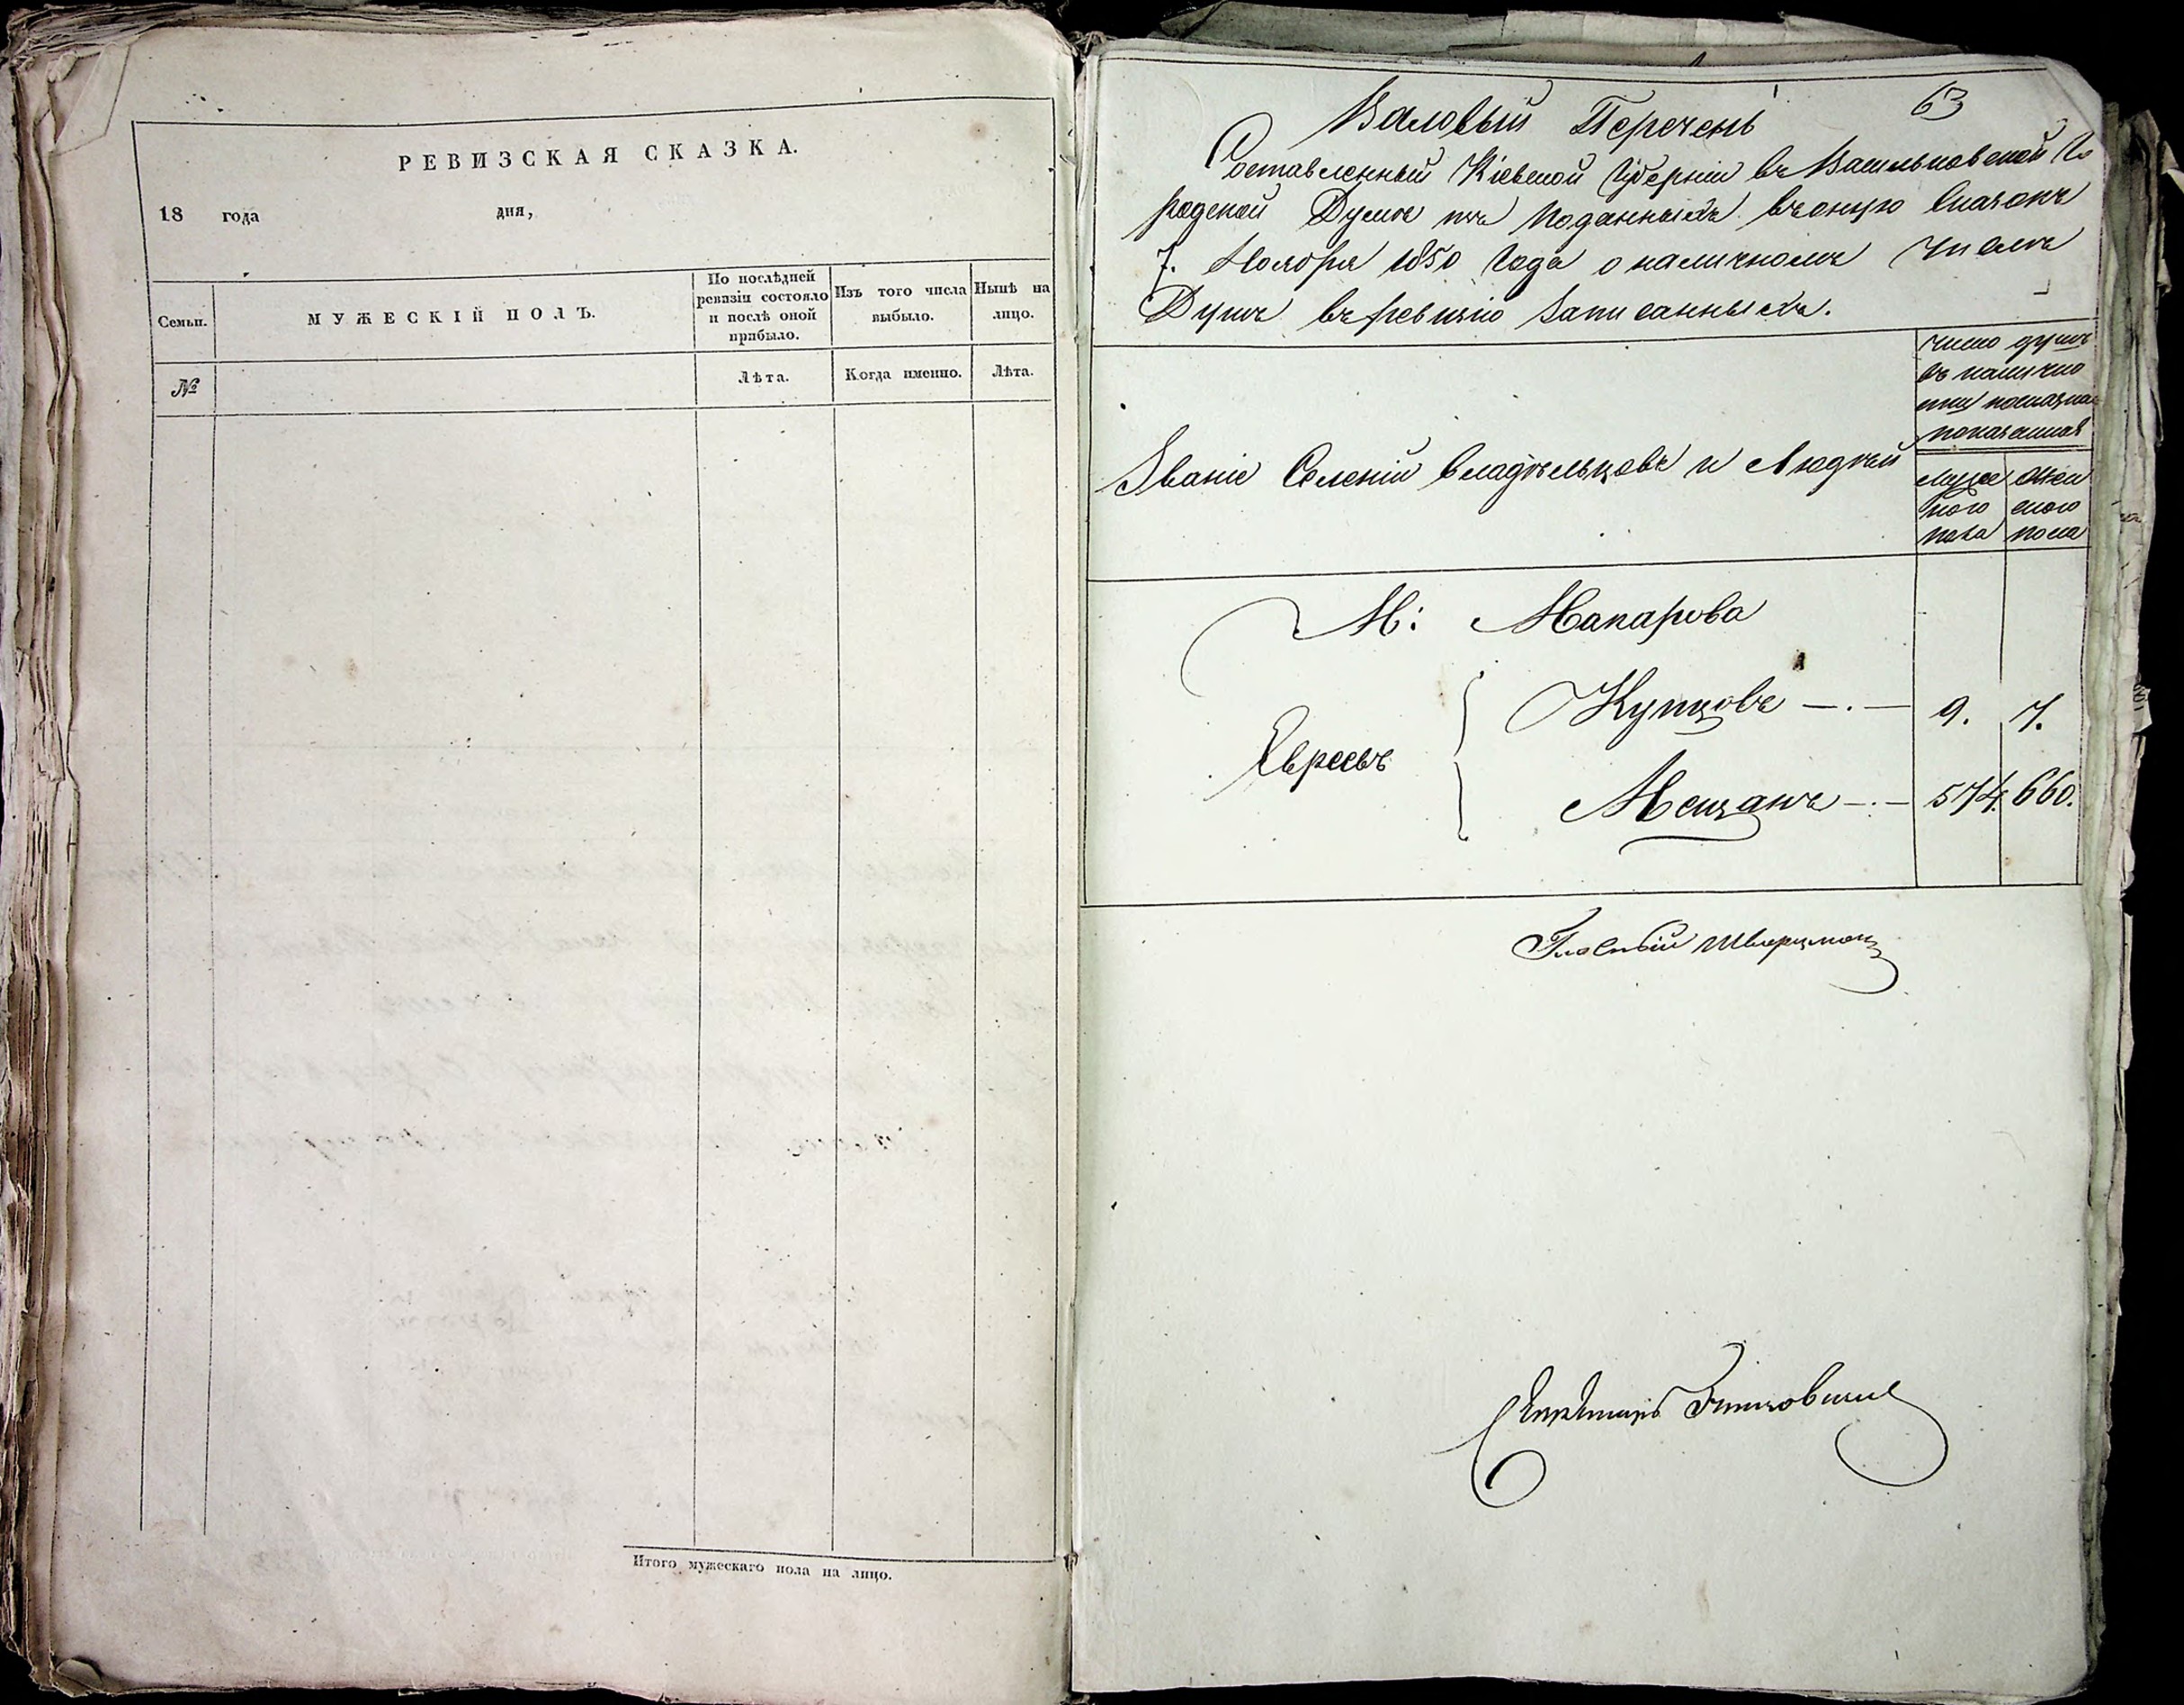 РЕВИЗСКАЯ СКАЗКА.
18 года дня,
Семьи.
МУЖЕСКІЙ ПОЛЪ.
По послѣдней ревизіи состояло и послѣ оной прибыло.
Изъ того числа выбыло.
Нынѣ на лицо.
№
Лѣта.
Когда именно.
Лѣта.
Итого мужескаго пола на лицо.
63
Валовый Перечень
Составленный Кіевской Губерніи въ Васильковской Го
родской Думѣ изъ поданныхъ въ оную Сказокъ
7. Ноября 1850 Года о наличномъ Числѣ
Душъ въ ревизію Записанныхъ.
Званіе Селеній Владѣльцовъ и Людей
число душъ
въ налично
сти
показанная
мужес
кого
пола
жен
ского
пола
М: Макарова
Евреевъ
Купцовъ —.— 9. 7.
Мещанъ —.— 574. 660.
Гласный Шварцман
Секретарь